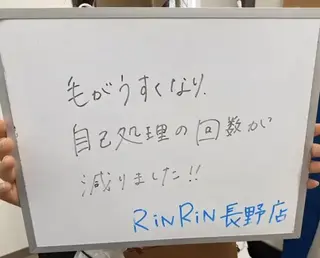 毛がうすくなり、
自己処理の回数が
減りました!!
RiNRiN長野店